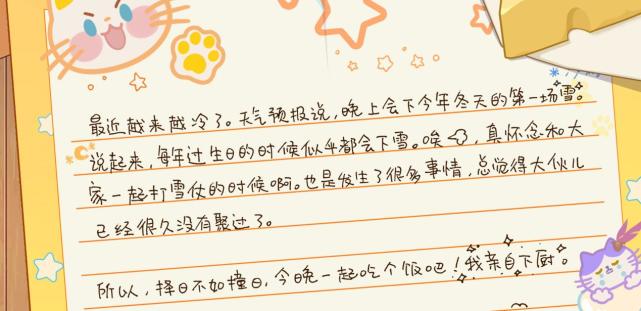 最近越来越冷了。天气预报说，晚上会下今年冬天的第一场雪。
说起来，每年过生日的时候似乎都会下雪。唉，真怀念和大
家一起打雪仗的时候啊。也是发生了很多事情，总觉得大伙儿
已经很久没有聚过了。
所以，择日不如撞日，今晚一起吃个饭吧！我亲自下厨。